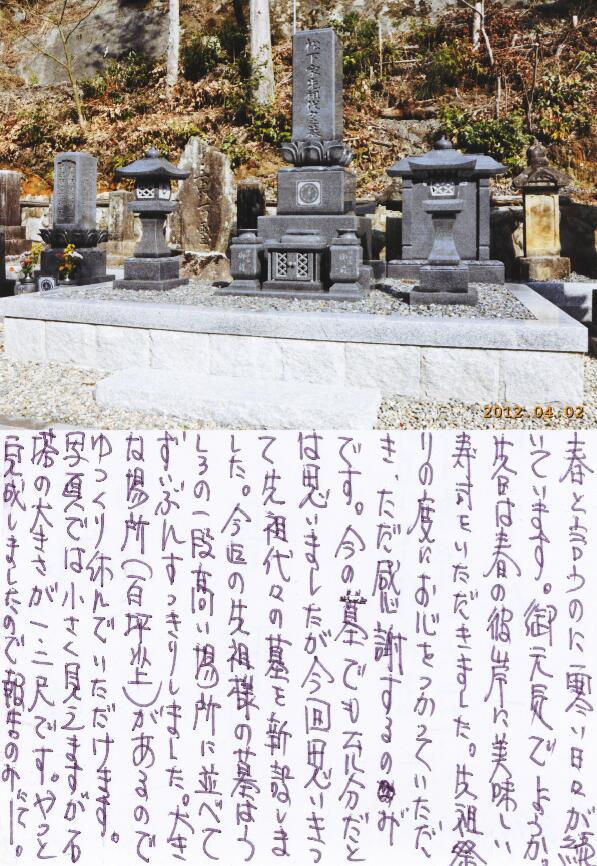 松下家先祖代々之墓
2012.04.02
春と言うのに寒い日々が続
いています。御元気でしょうか
先日は春の彼岸に美味しい
寿司をいただきました。先祖祭
りの度にお心をつかっていただ、
き、ただ感謝するのみが
です。今の墓でも充分だと
は思いましたが今回思いきっ
て先祖代々の墓を新設しま
した。今迄の先祖様の墓はう
しろの一段高い場所に並べて
ずいぶんすっきりしました。大き
な場所(百坪以上)があるので
ゆっくり休んでいただけます。
写真では小さく見えますが石
塔の大きさが一三尺です。やっと
完成しましたので報告のみにて。